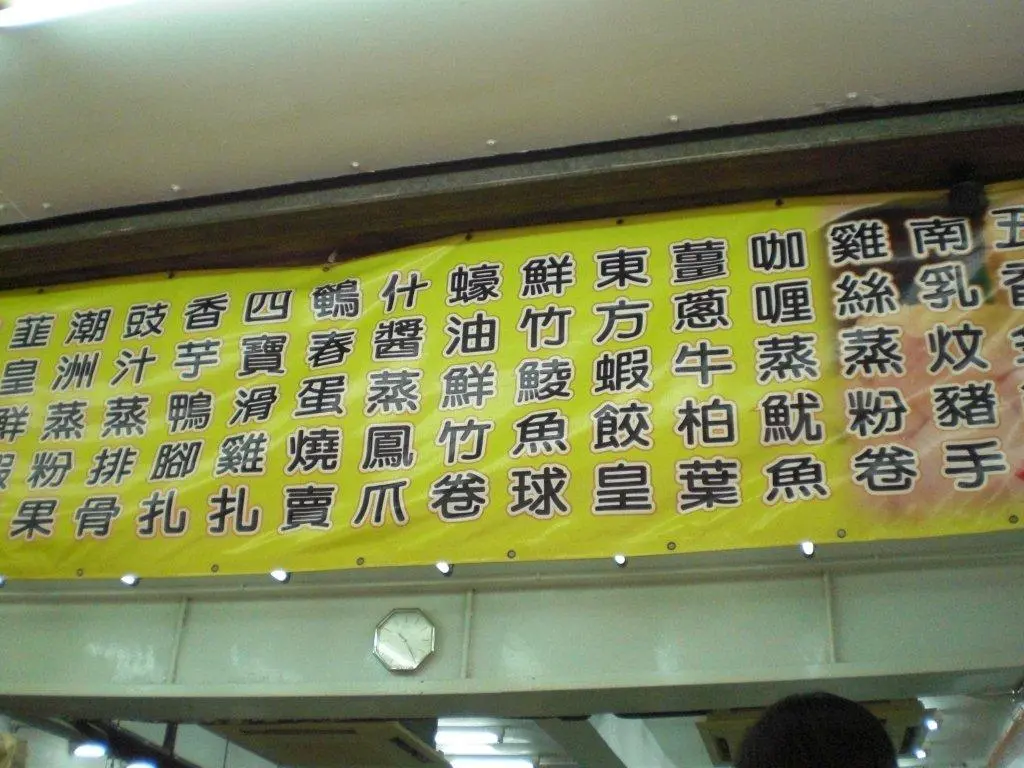 五香
南乳炆豬手
雞絲蒸粉卷
咖喱蒸魷魚
薑蔥牛柏葉
東方蝦餃皇
鮮竹鯪魚球
蠔油鮮竹卷
什醬蒸鳳爪
鵪春蛋燒賣
四寶滑雞扎
香芋鴨腳扎
豉汁蒸排骨
潮洲蒸粉果
韮皇鮮蝦